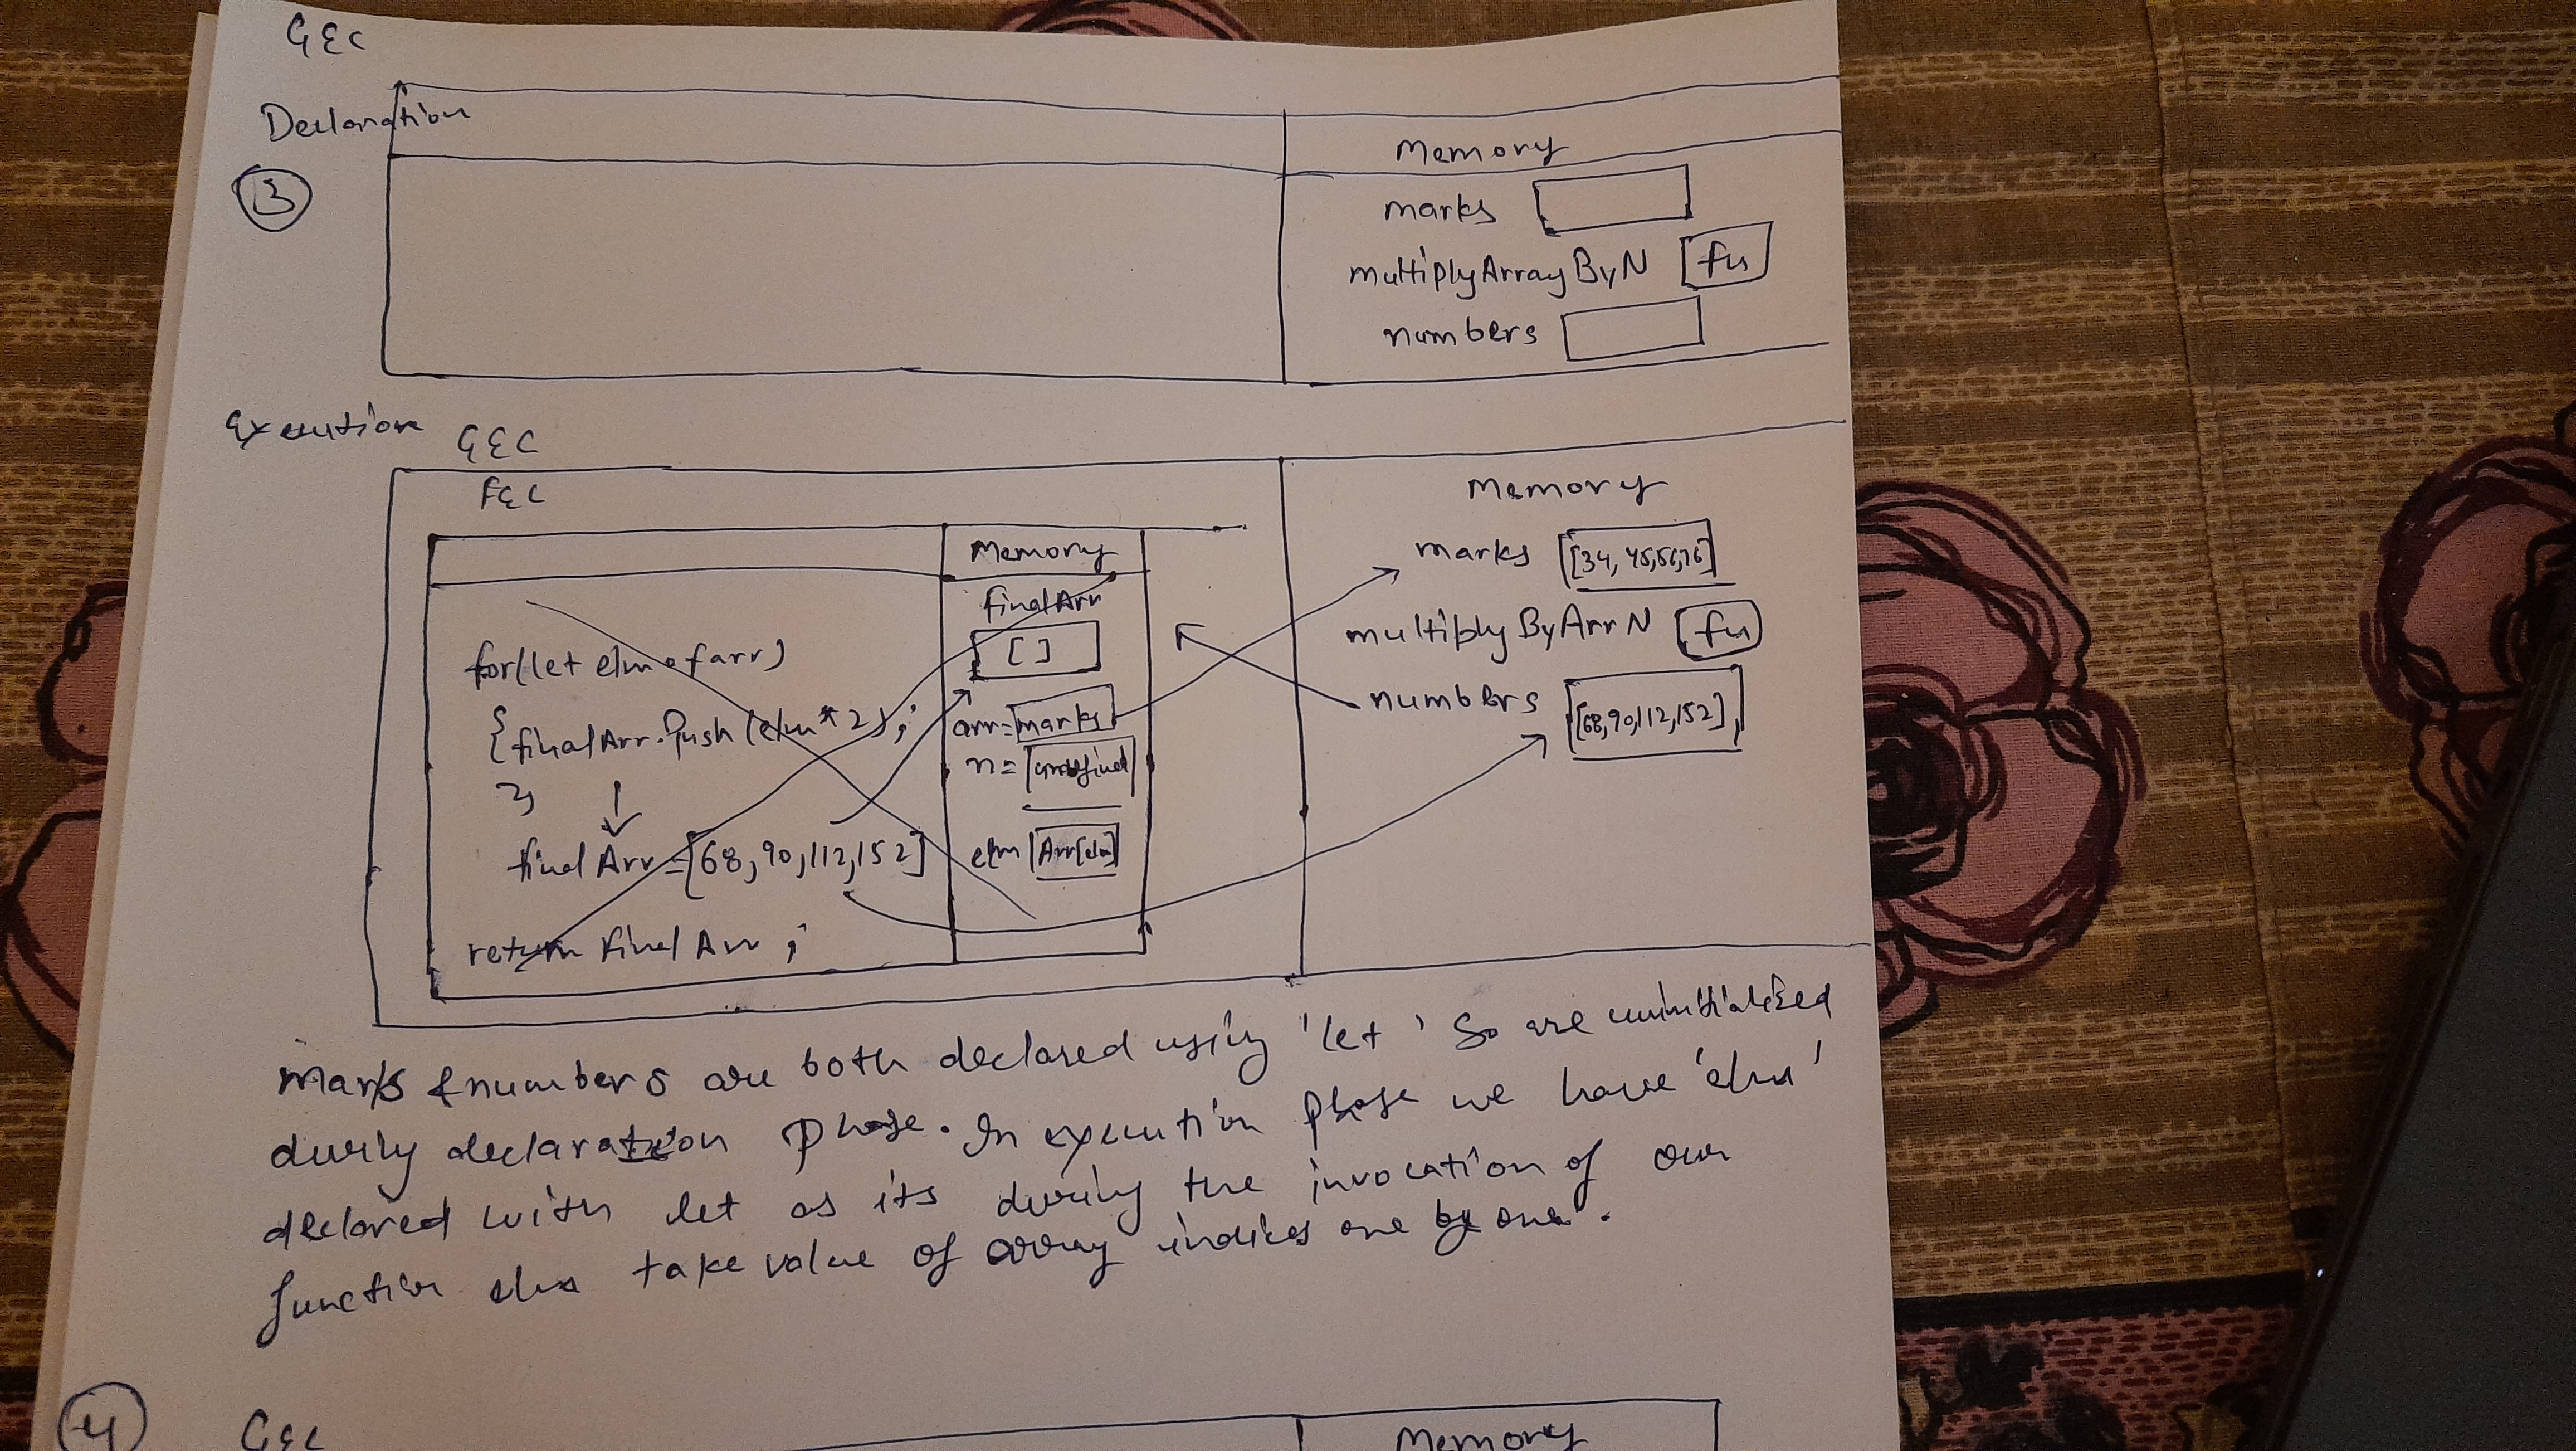 GEC
Declaration
③
Memory
marks
multiplyArrayByN fn
numbers
Execution GEC
FEC
Memory
Memory
for(let elm of arr)
{finalArr.push(elm*2);
}
finalArr=[68,90,112,152]
return finalArr;
finalArr
[ ]
arr=marks
n=
elm
marks
multiplyByArrN fn
numbers [68,90,112,152]
marks & numbers are both declared using 'let', so are uninitialized
during declaration phase. In execution phase we have 'elm'
declared with let as its during the invocation of our
function elm take value of array indices one by one.
④
GEC
Memory